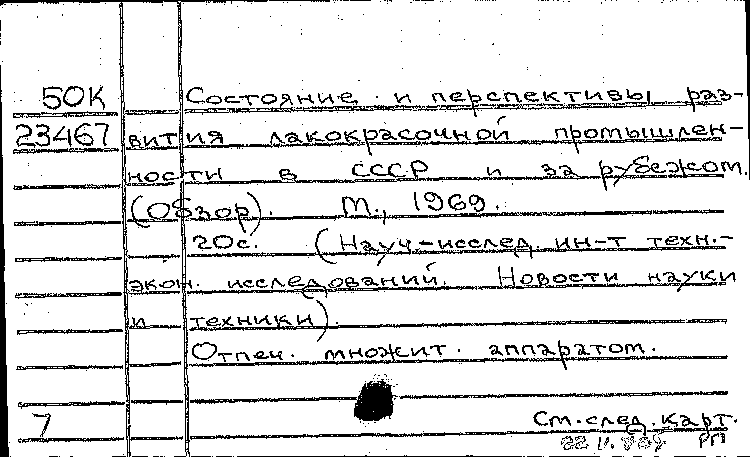 50К Состояние и перспективы раз-
23467 вития лакокрасочной промышлен-
ности в СССР и за рубежом.
(Обзор). М., 1969.
20с. (Науч-исслед. ин-т техн.-
экон. исследований. Новости науки
и техники).
Отпеч. множит. аппаратом.
7 См. след. карт.
РП